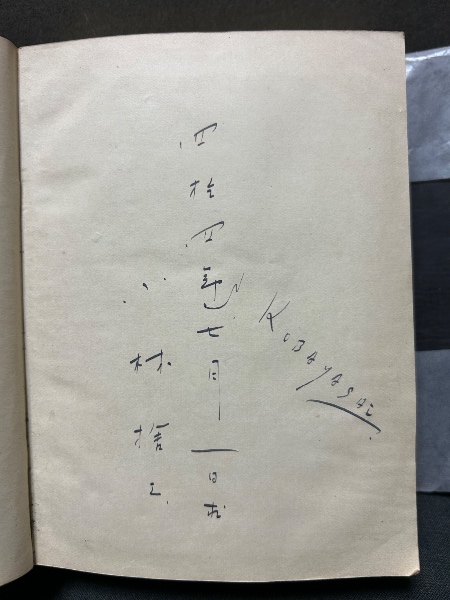 四拾四年七月一日
小林捨
KOBAYASHI